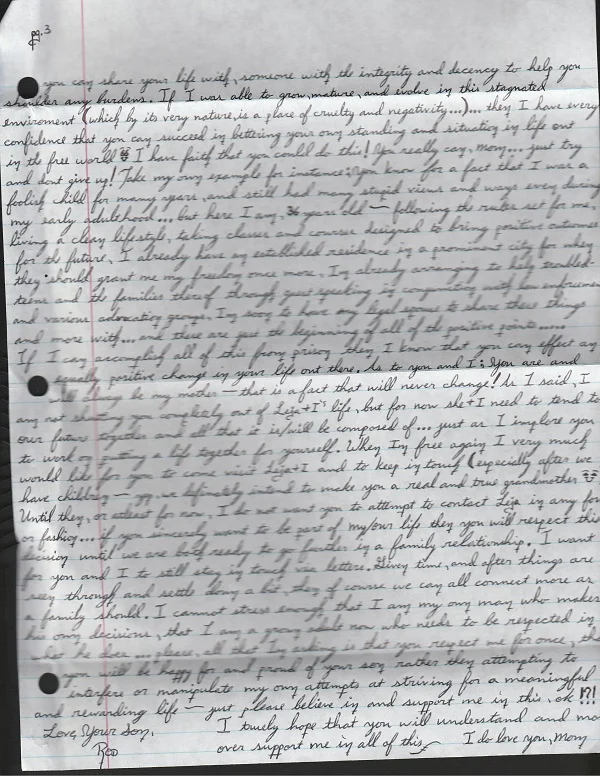 pg. 3
you can share your life with, someone with the integrity and decency to help you
shoulder any burdens. If I was able to grow, mature, and evolve in this stagnated
enviroment (which by its very nature, is a place of cruelty and negativity...)... then I have every
confidence that you can succeed in bettering your own standing and situation in life out
in the free world I have faith that you could do this! You really can, Mom... just try
and dont give up! Take my own example for instance: you know for a fact that I was a
foolish child for many years, and still had many stupid views and ways even during
my early adulthood... but here I am, years old — following the rules set for me,
living a clean lifestyle, taking classes and courses designed to bring positive outcomes
for the future, I already have an established residence in a prominent city for when
they should grant me my freedom once more, Im already arranging to help troubled
teens and the families thereof through guest speaking in conjunction with law enforcement
and various advocation groups. Im soon to have my legal spouse to share these things
and more with... and these are just the beginning of all of the positive points.....
If I can accomplish all of this from prison, then I know that you can effect an
equally positive change in your life out there. As to you and I: You are and
will always be my mother — that is a fact that will never change! As I said, I
am not shutting you completely out of Liza+I's life, but for now she+I need to tend to
our future together and all that it is/will be composed of... just as I implore you
to work on putting a life together for yourself. When Im free again I very much
would like for you to come visit Liza+I and to keep in touch (especially after we
have children — yep, we definately intend to make you a real and true grandmother
Until then, or atleast for now, I do not want you to attempt to contact Liza in any form
or fashion... if you sincerely want to be part of my/our life then you will respect this
decision until we are both ready to go further in a family relationship. I want
for you and I to still stay in touch via letters. Given time, and after things are
seen through and settle down a bit, then of course we can all connect more as
a family should. I cannot stress enough that I am my own man who makes
his own decisions, that I am a grown adult now who needs to be respected in
what he does... please, all that Im asking is that you respect me for once, that
you will be happy for and proud of your son rather then attempting to
interfere or manipulate my own attempts at striving for a meaningful
and rewarding life — just please believe in and support me in this, ok?!!
Love, Your Son,
Rod
I truely hope that you will understand and
over support me in all of this I do love you, Mom